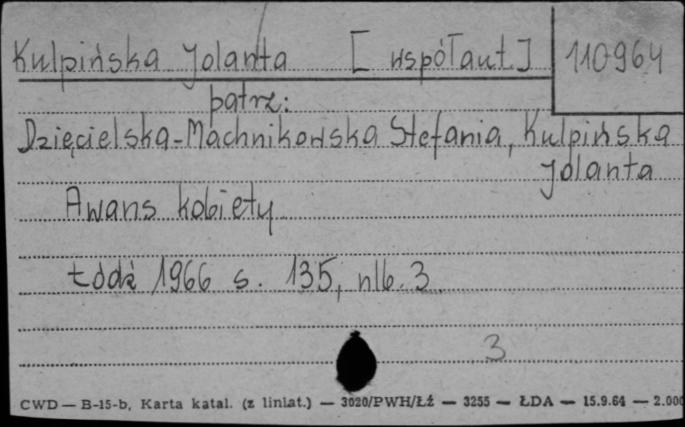 Kulpińska Jolanta [współaut.] 110964
patrz:
Dzięcielska-Machnikowska Stefania, Kulpińska
Jolanta
Awans kobiety
Łódź 1966 s. 135, nlb. 3.
3
CWD — B-15-b, Karta katal. (z liniat.) — 3020/PWH/Łź — 3255 — ŁDA — 15.9.64 — 2.000